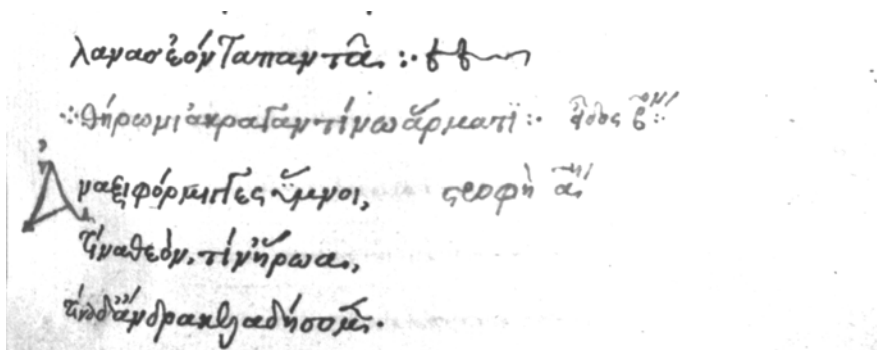 λανας ἐόντα παντᾶ :
θήρωνι ἀκραγαντίνω ἅρματι : εἶδος β :
Ἀναξιφόρμιγγες ὕμνοι, στροφὴ α
τίνα θεόν, τίν' ἥρωα,
τίνα δ' ἄνδρα κελαδήσομεν.